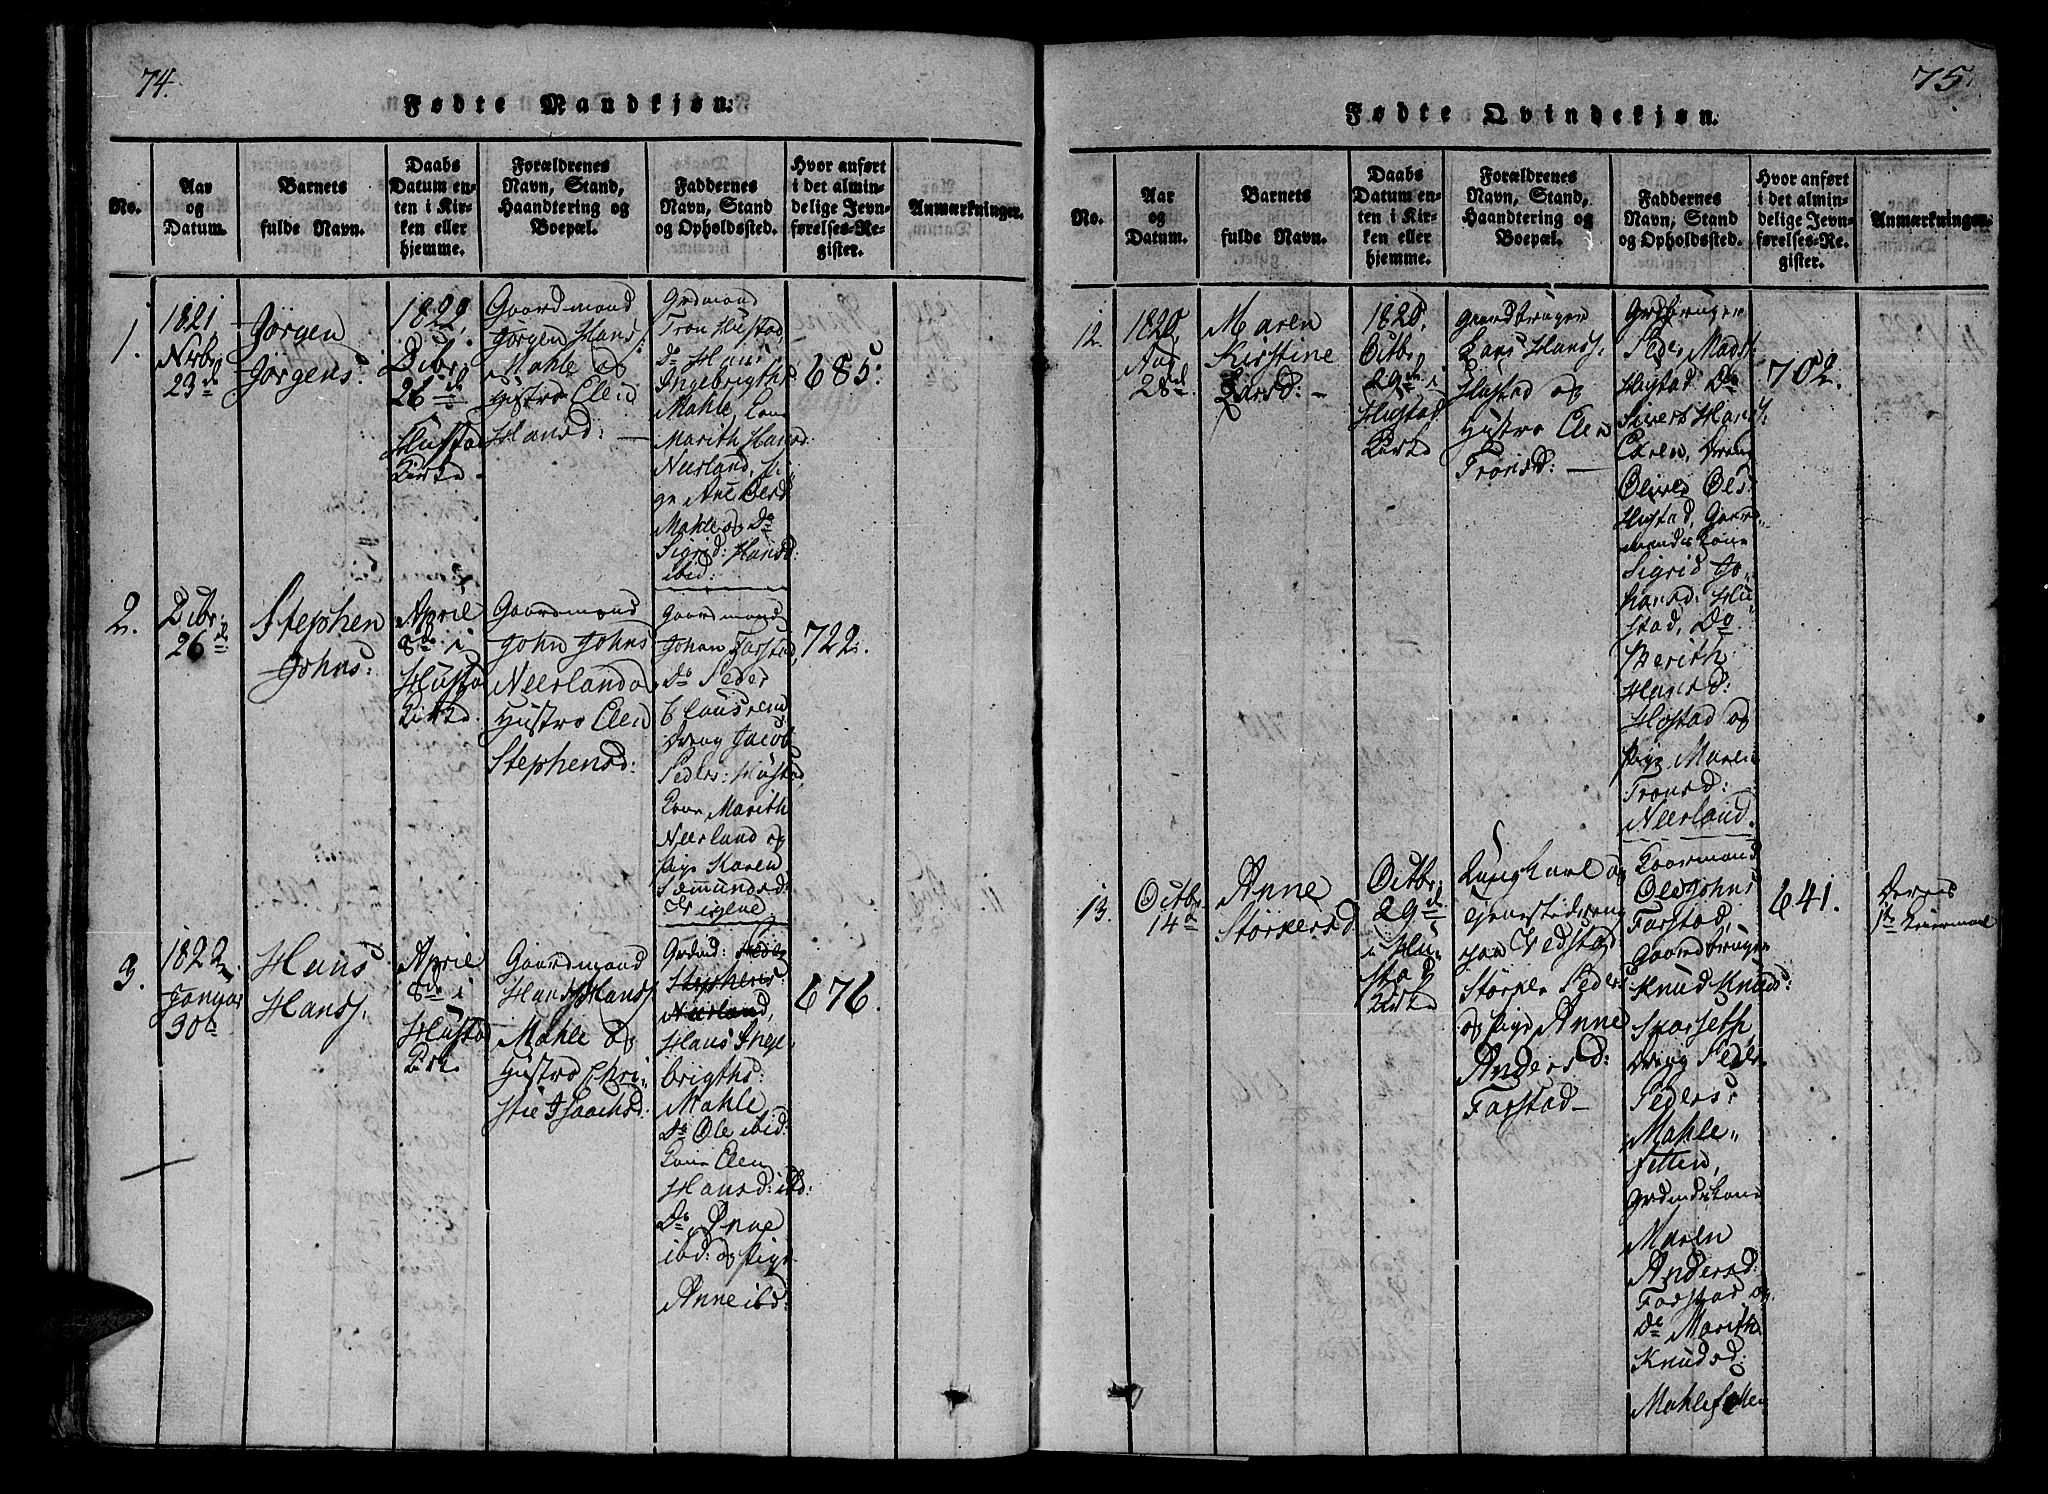 74.
Fødte Mandkjøn:
No.
Aar
og
Datum.
Barnets
fulde Navn.
Daabs
Datum en-
ten i Kir-
ken eller
hjemme.
Forældrenes
Navn, Stand,
Haandtering og
Boepæl.
Faddernes
Navn, Stand
og Opholdssted.
Hvor anført
i det almin-
delige Jevn-
førelses-Re-
gister.
Anmærkninger.
1.
1821,
23d
Jørgen
Jørgens:
Debr
26d i
Hustad
Kirke.
Gaardmand
Jørgen Hans:
Mahle og
Hustro Elen
Hansd:
Grdmand
Tron Hustad,
Do Hans
Ingebrigths
Mahle, Kone
Marith Hansd:
Neerland, Pi-
ge Ane Olesd
Mahle og Do
Sigrid: Hansd:
ibid:
685.
2.
Debr.
26d
Stephen
Johns:
April
8de i
Hustad
Kirke.
Gaardmand
John Johns
Neerland og
Hustro Elen
Stephensd:
Gaardmand
Johan Farstad,
Do Peder
Clausen
Dreng Jacob
Peders: Hustad
Kone Marith
Neerland og
Pige Karen
Sæmundsd:
722.
3.
1822,
Januar
30te
Hans
Hans:
April
8de i
Hustad
Kirk.
Gaardmand
Hans Hans:
Mahle og
Hustro Chri-
stie Isaachsd:
Stephens
Neerland,
Hans Inge-
brigths:
Mahle,
Do Ole ibid:
Kone Elen
Hansd: ibd:
Do Anne
ibd: og Pige
Anne ibd:
676.
75.
Fødte Qvindekjøn.
No.
Aar
og
Datum.
Barnets
fulde Navn.
Daabs
Datum en-
ten i Kir-
ken eller
hjemme.
Forældrenes
Navn, Stand,
Haandtering og
Boepæl.
Faddernes
Navn, Stand
og Opholdssted.
Hvor anført
i det almin-
delige Jevn-
førelses-Re-
gister.
Anmærkninger.
12.
1820,
Aug
28d.
Maren
Kirstine
Larsd:
1820,
Octbr
29de i
Hustad
Kirke
Gaardbruger
Lars Hans:
Hustad og
Hustro Elen
Tronsd:
Grdbruger
Peder Mads:
Hustad, Do
Sivert Hans:
Dreng
Oliver Ols:
Hustad, Gaard-
mandskone
Sigrid Jo-
hansd: Hu-
stad, Do
Merith
Hansd:
Hustad og
Pige Maren
Tronsd:
Neerland.
702.
13.
Octbr
14d
Anne
Størkersd
Octbr
29de
i Hu-
stad
Kirke
Ungkarl og
Tjenestedreng
paa Vedstad
Størker Peders
og Pige Anne
Andersd:
Farstad
Gaarmand
Ole Johns
Farstad,
Gaardbruger
Knud Knuds:
Skarseth
Dreng Peder
Peders:
Mahle-
fetten,
Grdmdskone
Maren
Andersd:
Farstad og
Do Marith
Knudsd:
Mahlefetten
641.
Deres
1te Leiermaal